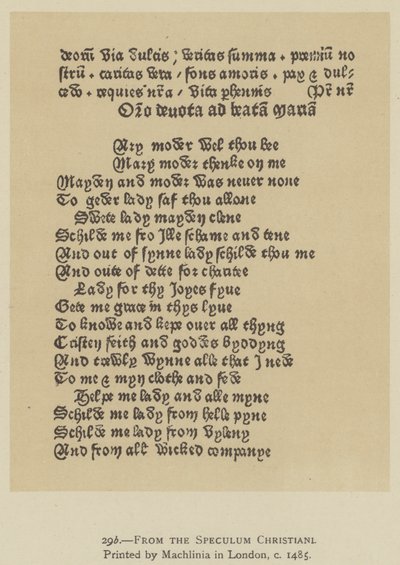 deorū via dulcis ; veritas summa . premiū no
strū . caritas vera / fons amoris . pax & dul⸗
cedo . requies nr̄a / vita phennis Pr̄ nr̄
Orō deuota ad beatā mariā
Ary moder wel thou bee
Mary moder thenke on me
Mayden and moder was neuer none
To geder lady saf thou allone
Swete lady mayden clene
Schilde me fro Jlle schame and tene
And out of synne lady schilde thou me
And oute of dette for charitee
Lady for thy Joyes fyue
Gete me grace in thys lyue
To knowe and kepe ouer all thyng
Cristen feith and goddes byddyng
And trewly wynne alle that J nede
To me & myn clothe and fede
Helpe me lady and alle myne
Schilde me lady from helle pyne
Schilde me lady from vyleny
And from all wicked companye
29b.—FROM THE SPECULUM CHRISTIANI.
Printed by Machlinia in London, c. 1485.